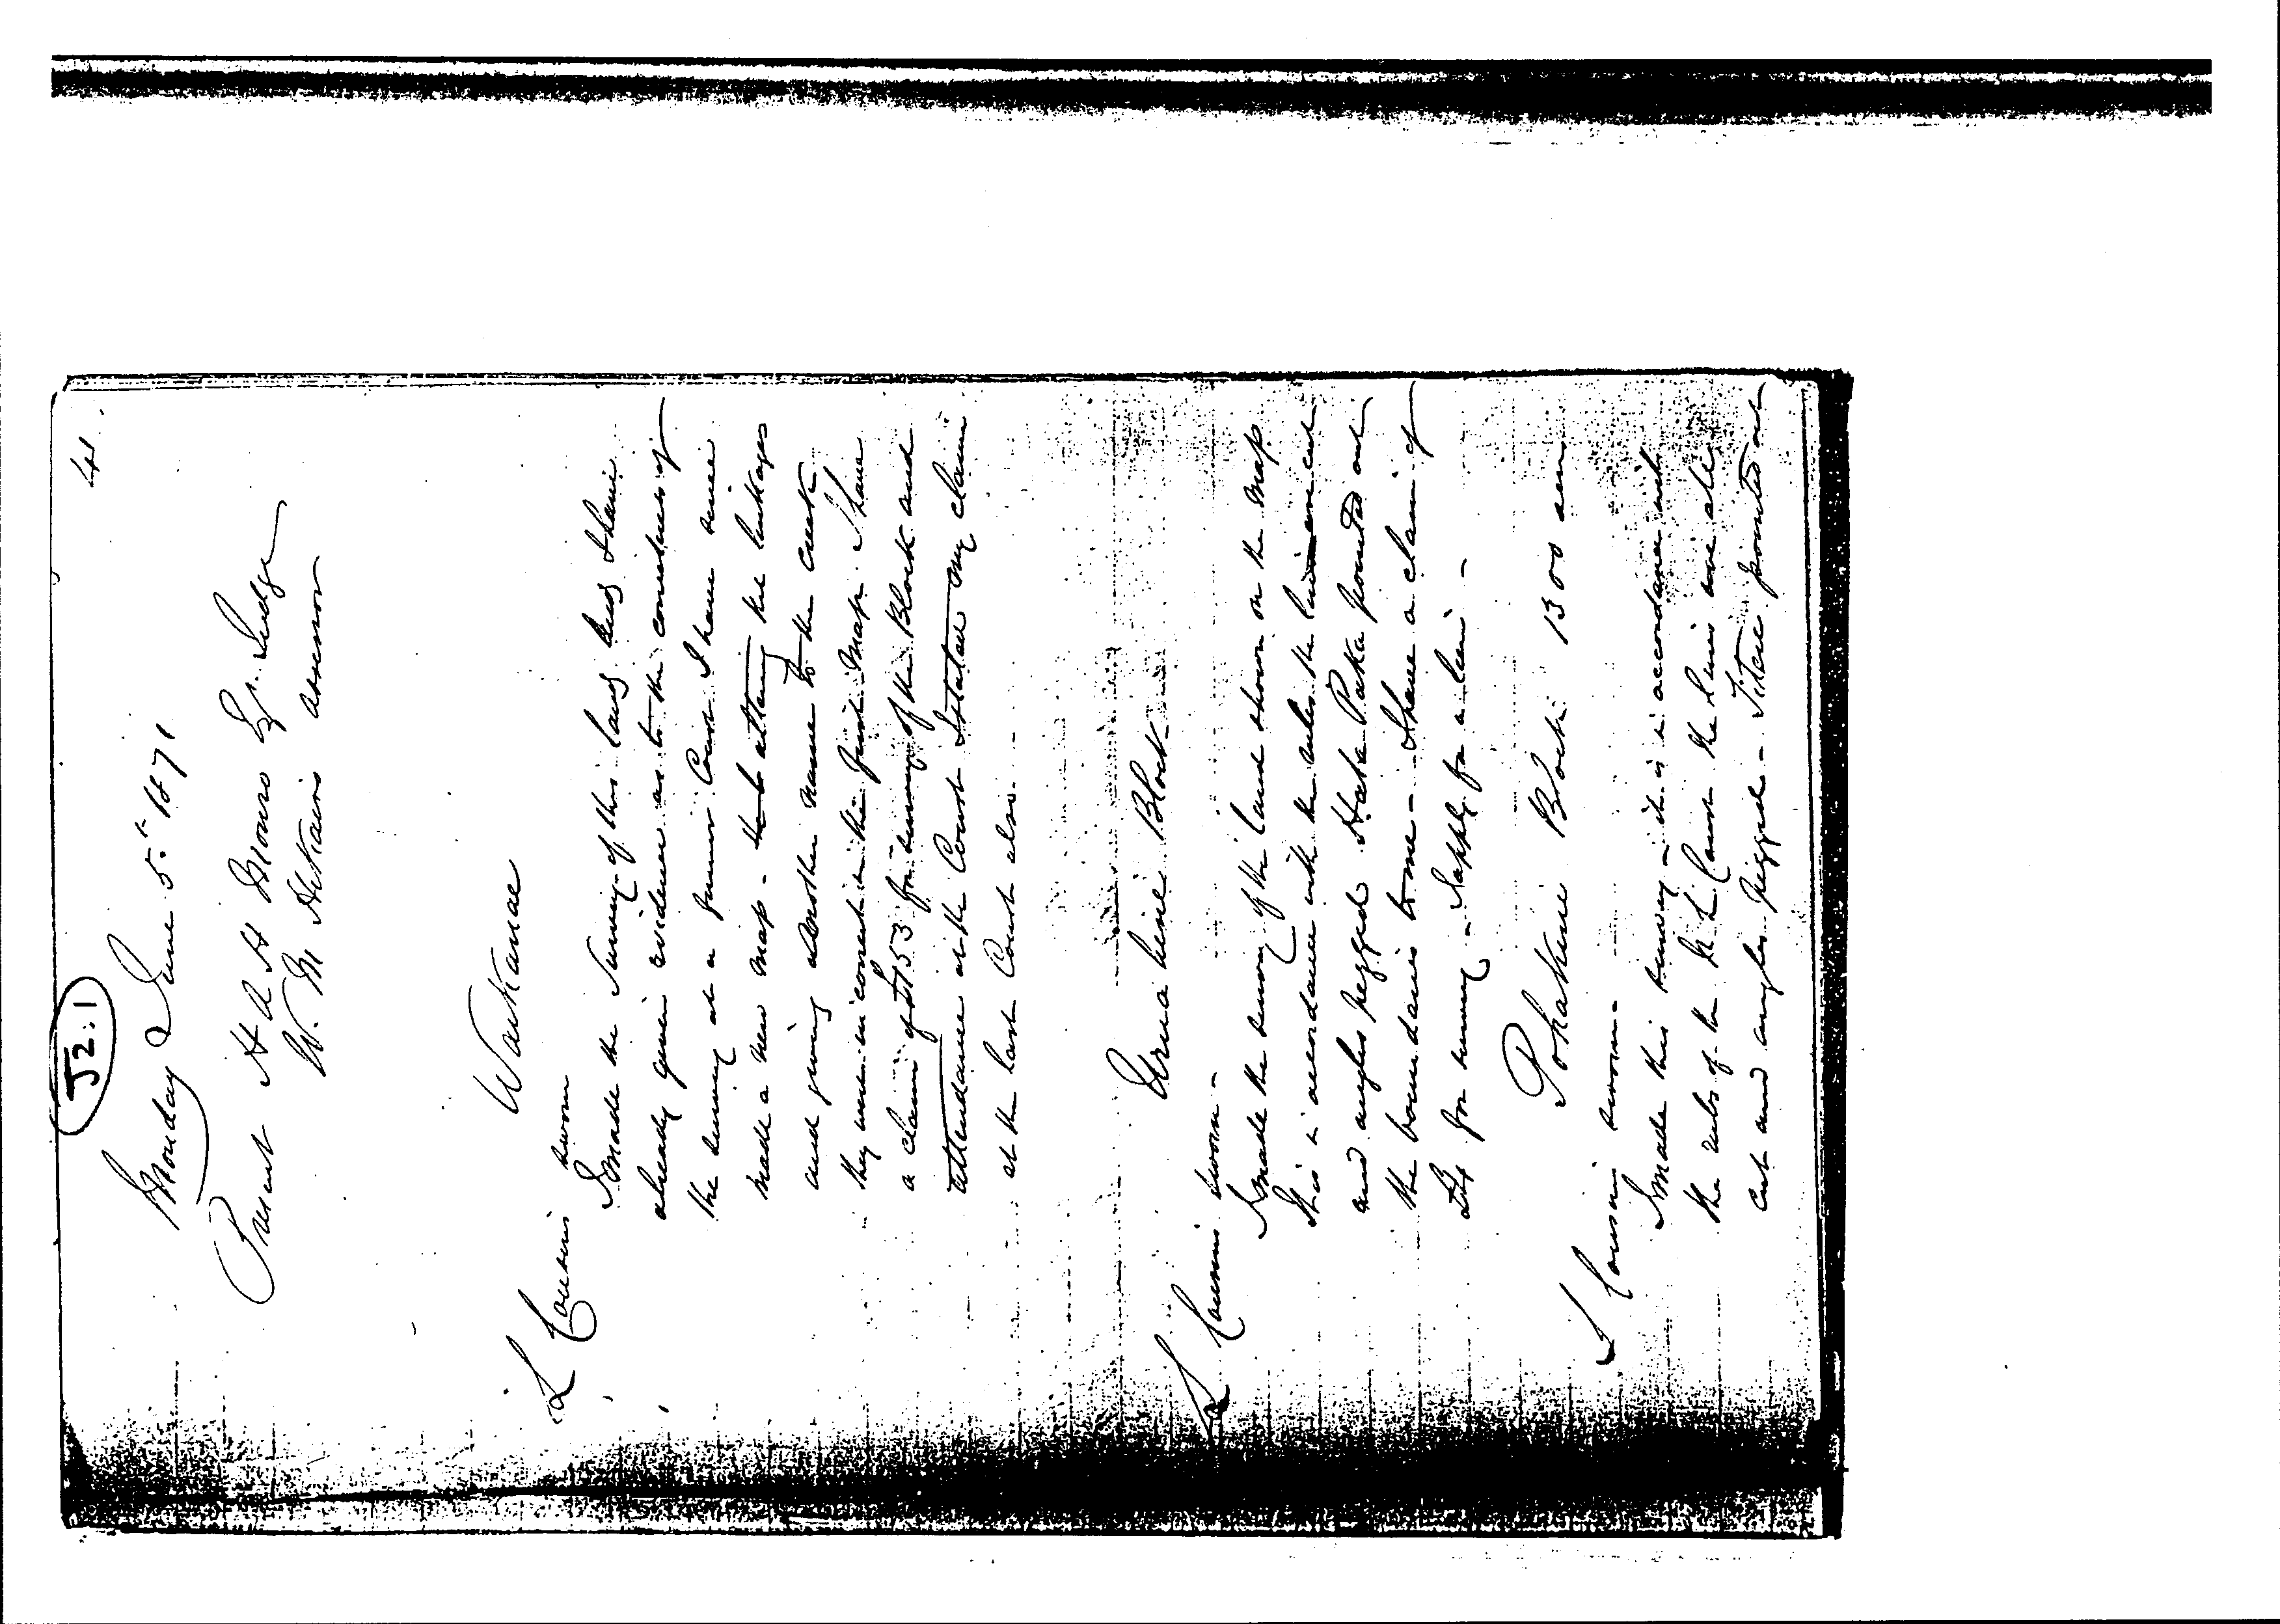 J2:1
41
Monday June 5th 1871
Present H A H Monro Esq. Judge
W. M. Hikairo assessor
Waikanae
L Cousins sworn
I made the Survey of this land. I have
already given evidence as to the correctness of
the survey at a former Court I have since
made a new map - attaching the linkages
and giving another name to the creek
they were incorrect in the first Map. I have
a claim of £153 for survey of the Block and
attendance at the Court I stated my claim
at the last Court also.
hine Block
L Cousins sworn -
I made the survey of the land shown on the map
It is in accordance with the rules the lines are cut
and angles pegged Paka pointed out
the boundaries to me - I have a claim of
for survey - I apply for a lien -
Pohakui Block 1300 acres
L Cousins sworn -
I made this survey - it is in accordance with
the rules of the N L Court the lines are all
cut and angles pegged - pointed out